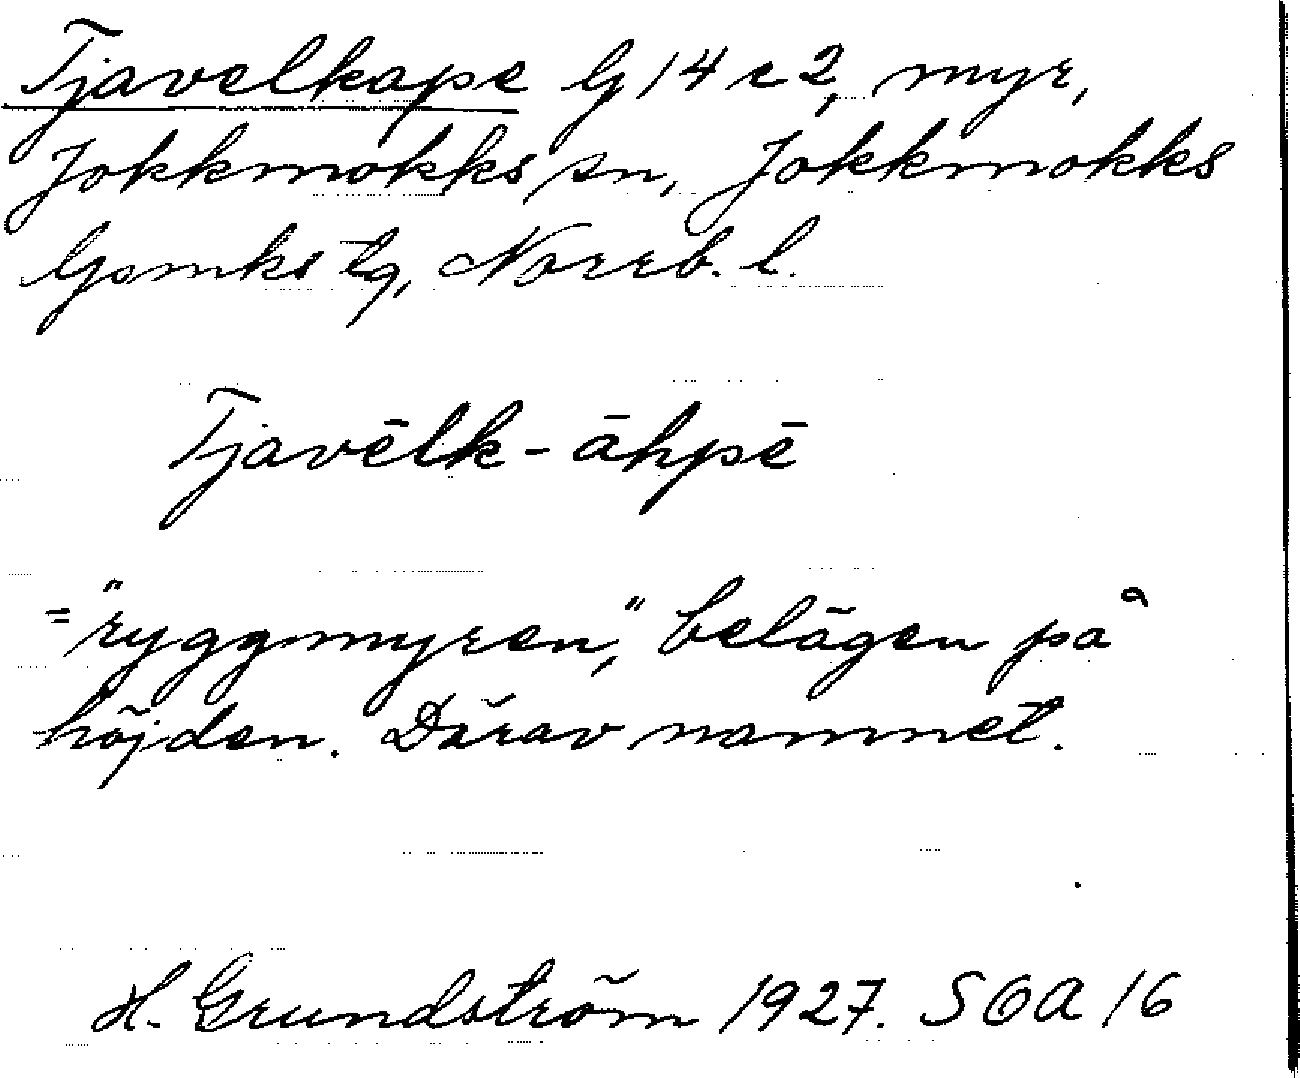 Tjavelkape G 14 c 2, myr,
Jokkmokks sn, Jokkmokks
lpmks tg, Norrb. l.
Tjavēlk-āhpē
= "ryggmyren," belägen på
höjden. Därav namnet.
H. Grundström 1927. SOA 16